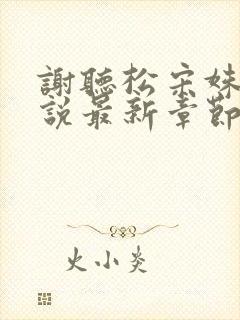 謝聽松宋妹
說最新章節
火小炎